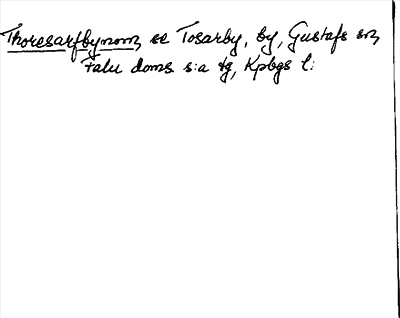 Thoresarfbynom, se Tosarby, by, Gustafs sn,
Falu doms s:a tg, Kpbgs l: